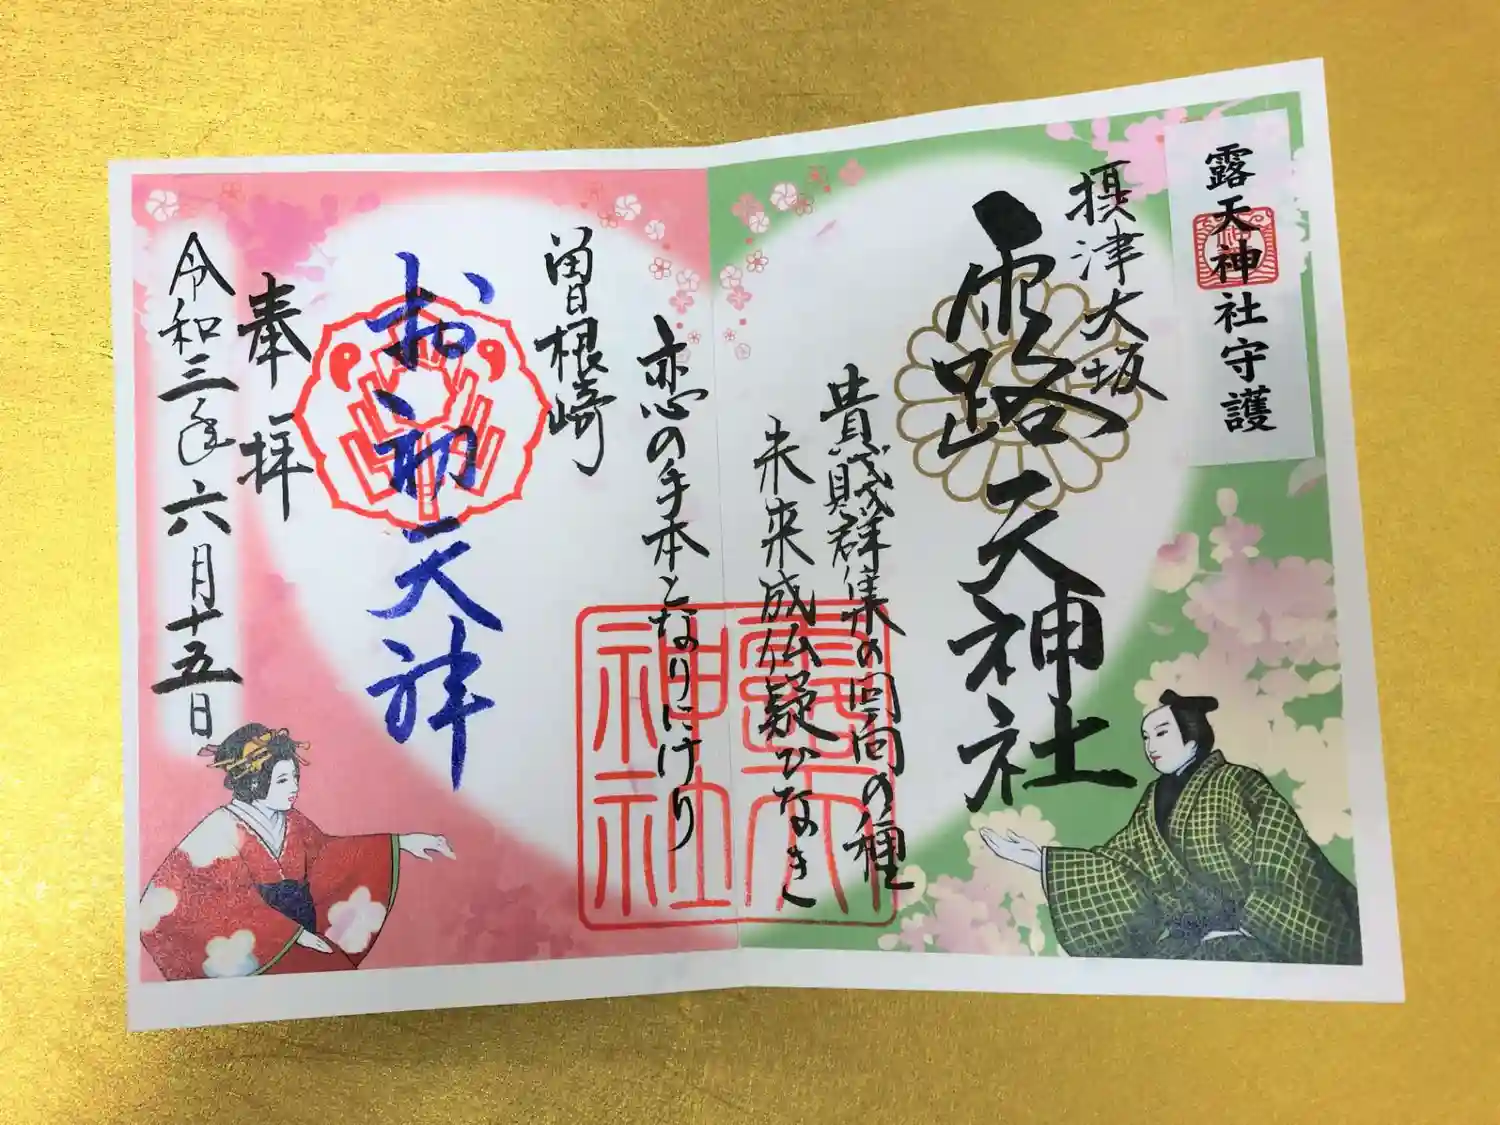 露天神社守護
摂津大坂
露天神社
貴賎群集の回向の種
未来成仏疑ひなき
恋の手本となりにけり
曽根崎
お初天神
奉拝
令和三年六月十五日
露天
神社